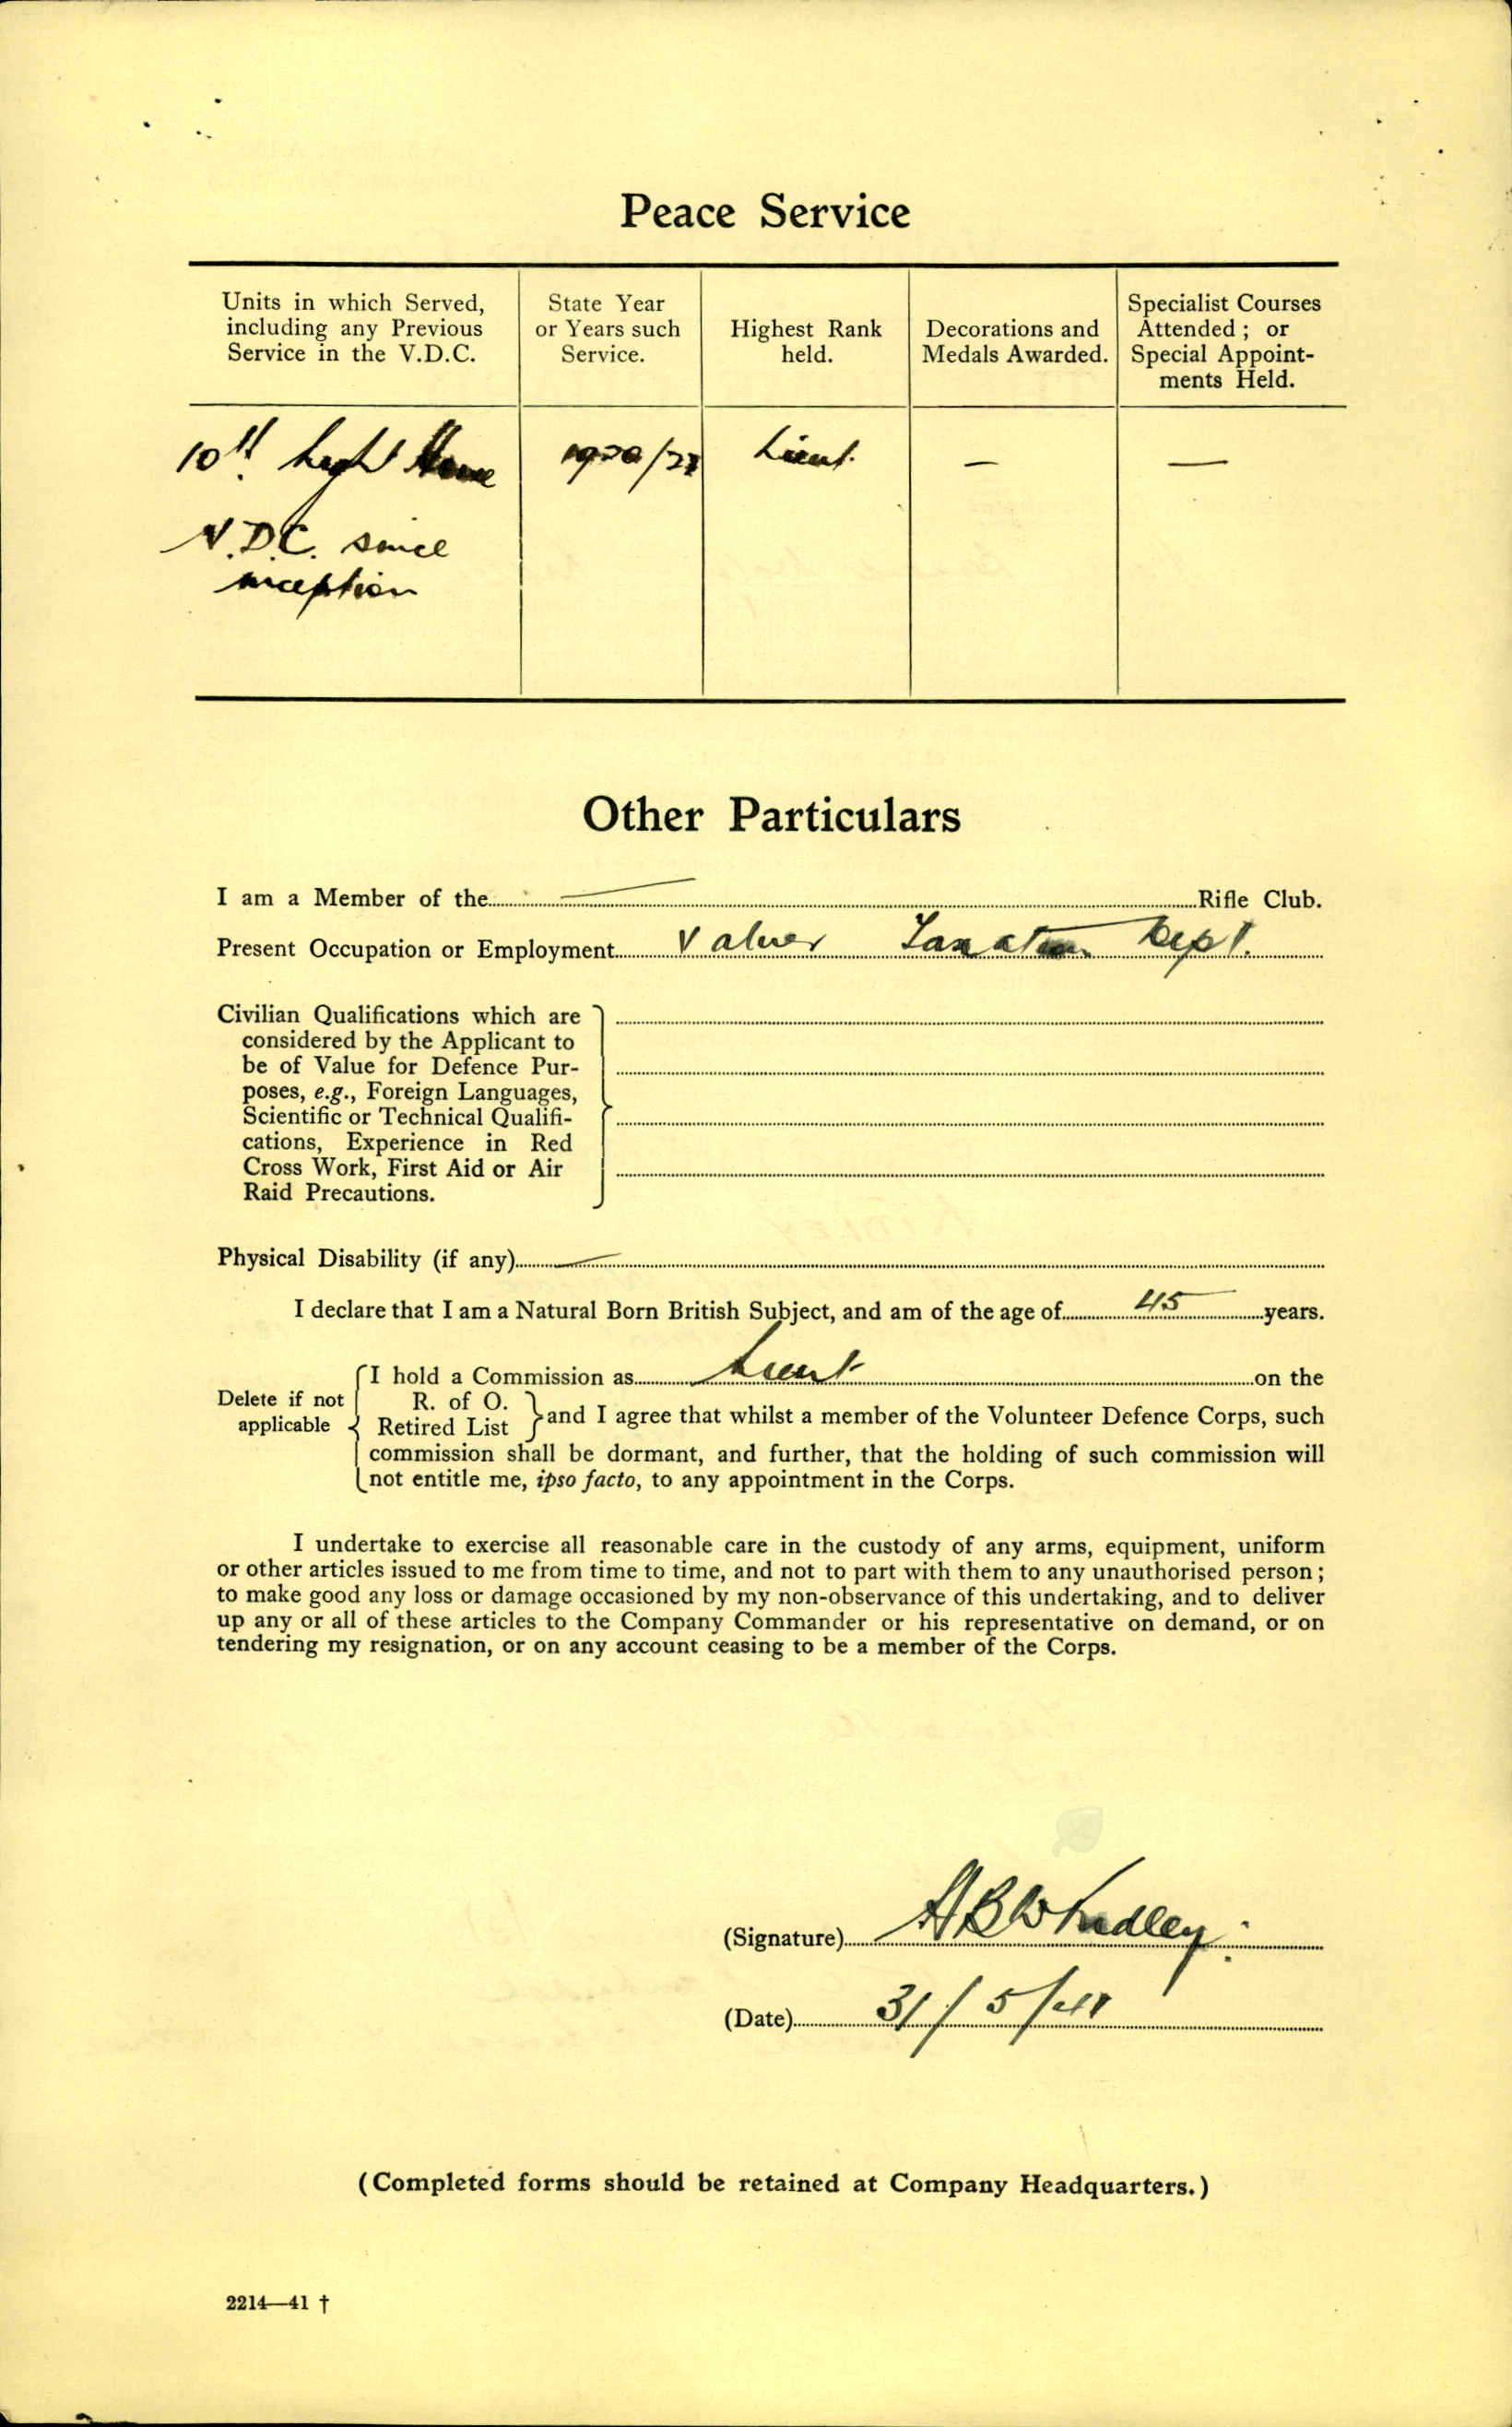 Peace Service
Units in which Served, including any Previous Service in the V.D.C.
State Year or Years such Service.
Highest Rank held.
Decorations and Medals Awarded.
Specialist Courses Attended; or Special Appointments Held.
10th Light Horse
1920/
Lieut.
—
—
V.D.C. since
inception
Other Particulars
I am a Member of the — Rifle Club.
Present Occupation or Employment Valuer Taxation Dept.
Civilian Qualifications which are
considered by the Applicant to
be of Value for Defence Pur-
poses, e.g., Foreign Languages,
Scientific or Technical Qualifi-
cations, Experience in Red
Cross Work, First Aid or Air
Raid Precautions.
Physical Disability (if any) —
I declare that I am a Natural Born British Subject, and am of the age of 45 years.
I hold a Commission as Lieut on the
Delete if not applicable
R. of O.
Retired List
and I agree that whilst a member of the Volunteer Defence Corps, such
commission shall be dormant, and further, that the holding of such commission will
not entitle me, ipso facto, to any appointment in the Corps.
I undertake to exercise all reasonable care in the custody of any arms, equipment, uniform
or other articles issued to me from time to time, and not to part with them to any unauthorised person;
to make good any loss or damage occasioned by my non-observance of this undertaking, and to deliver
up any or all of these articles to the Company Commander or his representative on demand, or on
tendering my resignation, or on any account ceasing to be a member of the Corps.
(Signature)
(Date) 31/5/41
(Completed forms should be retained at Company Headquarters.)
2214—41 †